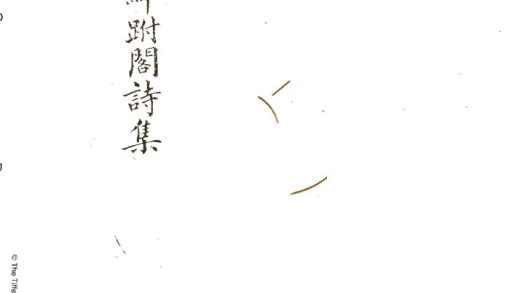 跗閣詩集
© The Tiffe